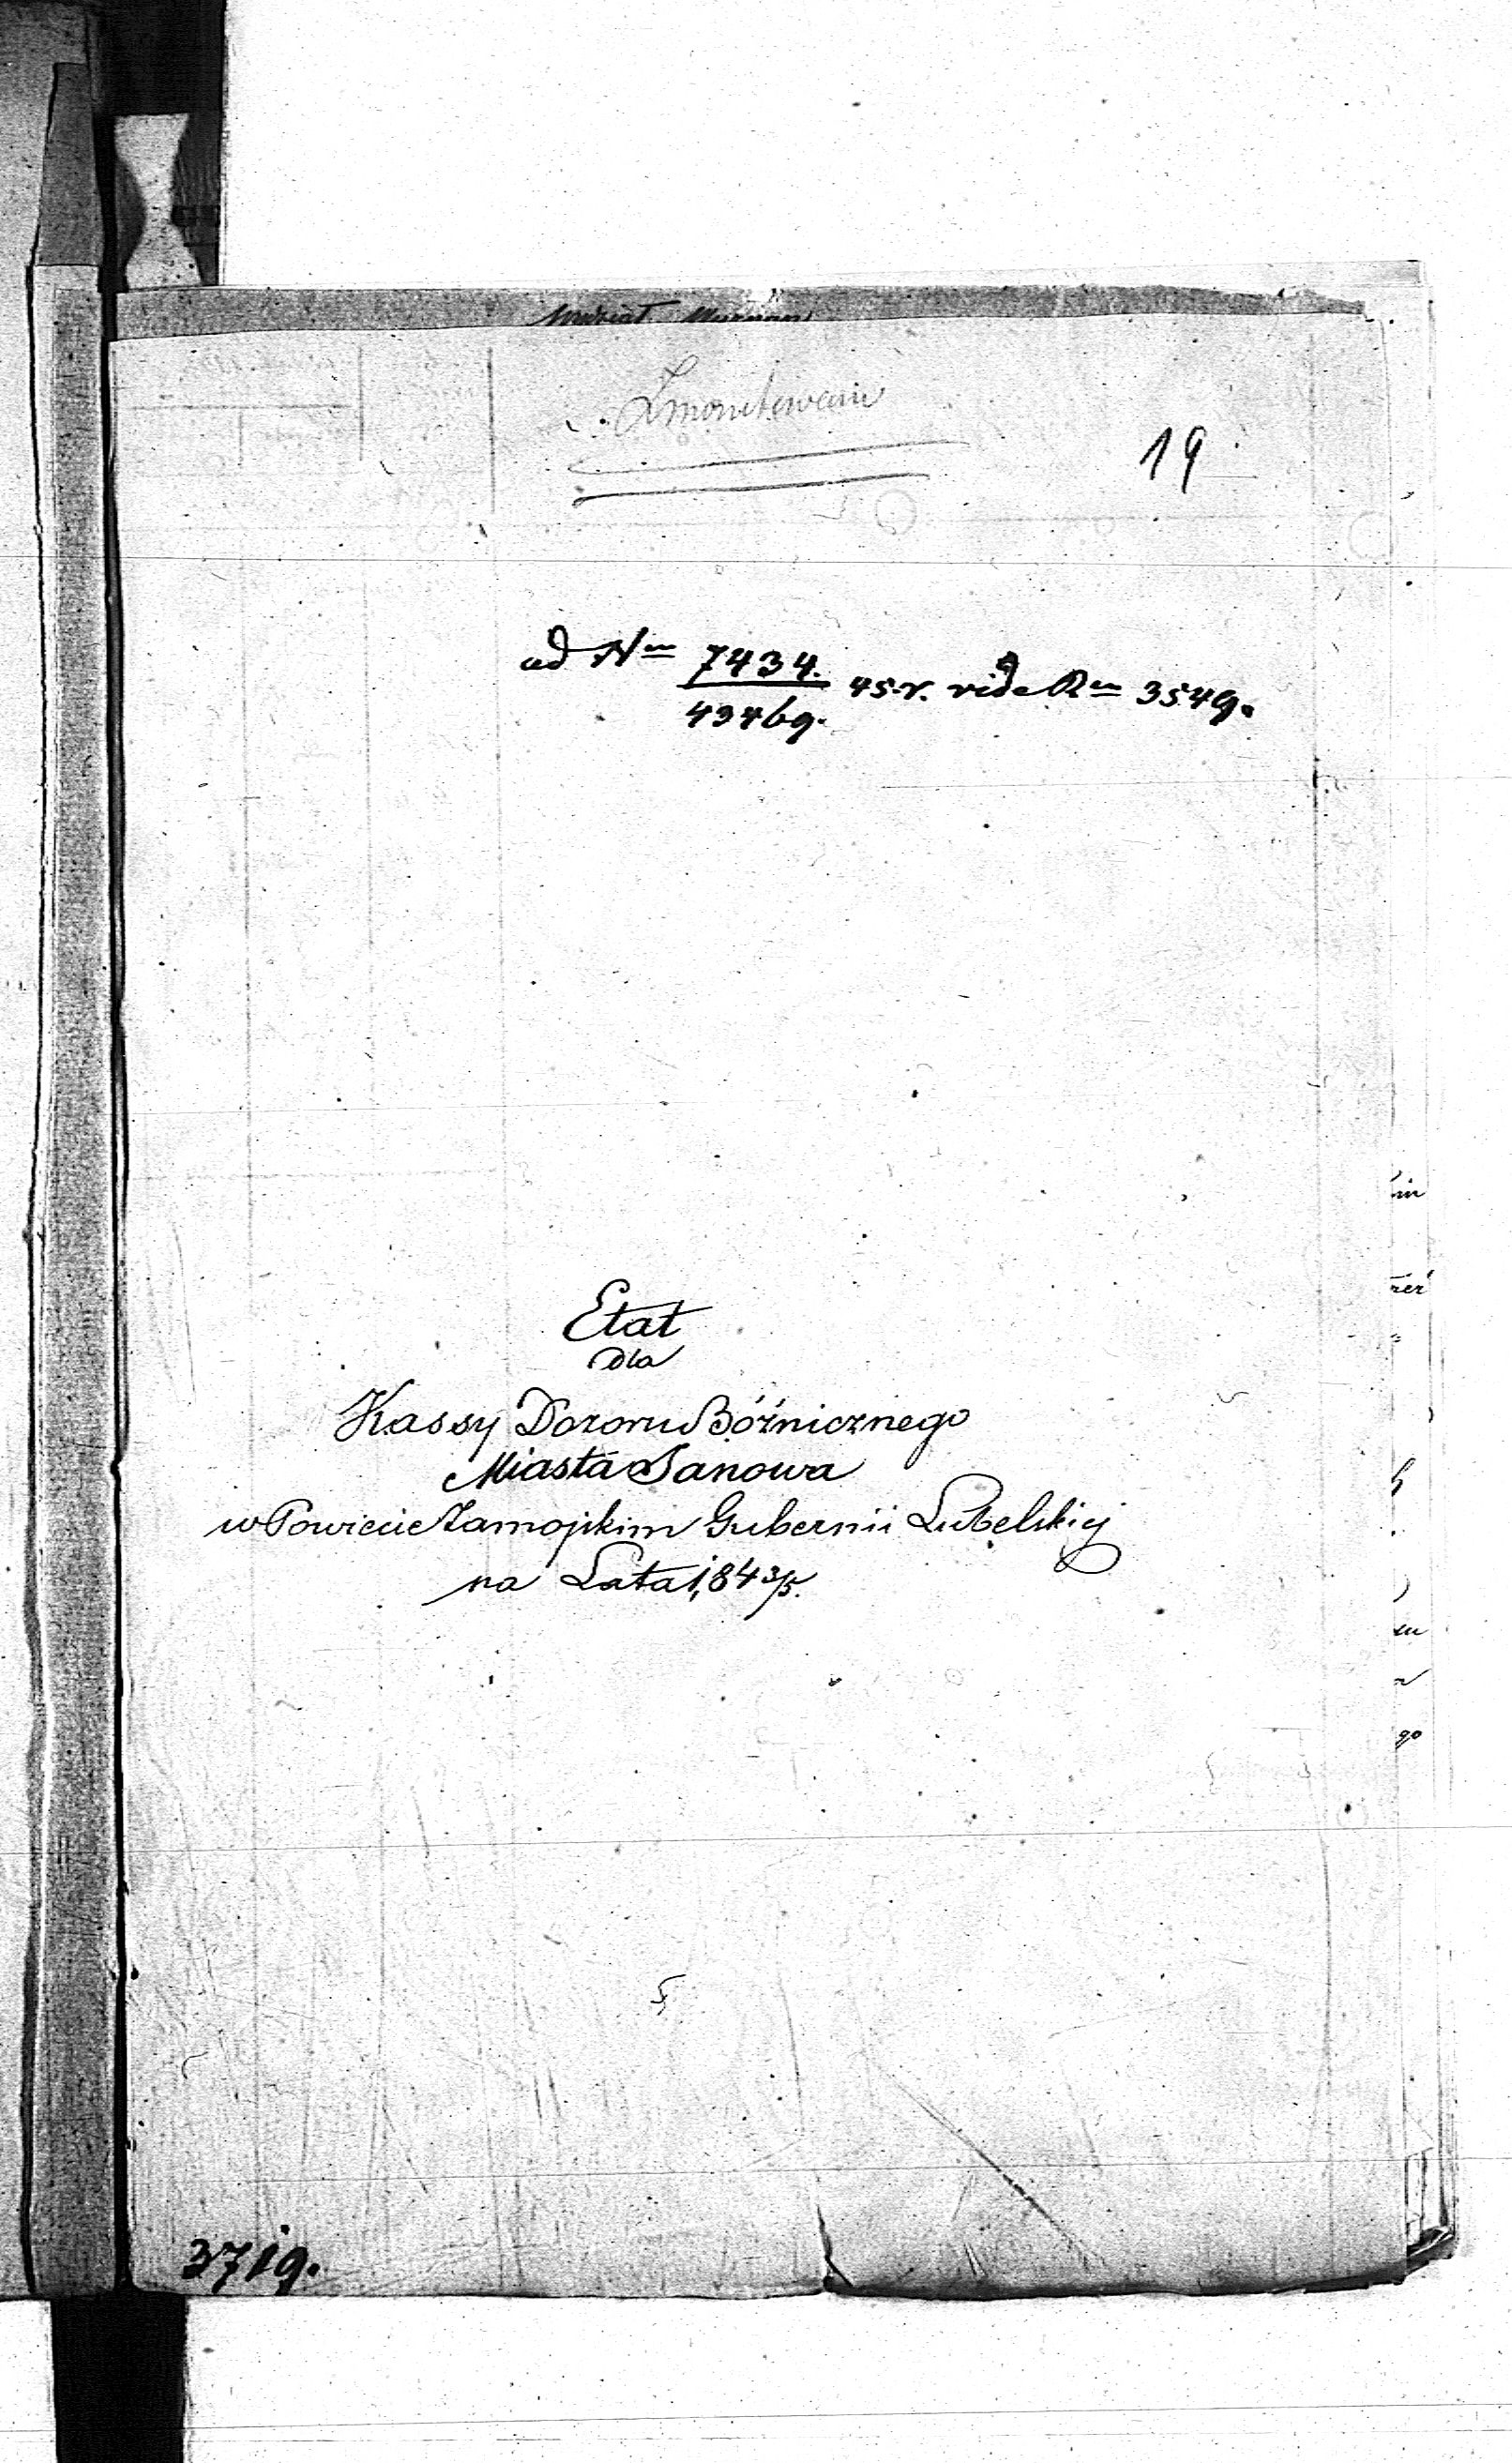 19
ad Nm 7434./43469. 45.r. vide Rm 3549.
Etat
dla
Kassy Dozoru Bóżnicznego
Miasta Janowa
w Powiecie Zamojskim Gubernii Lubelskiej
na Lata 1843/5.
3719.